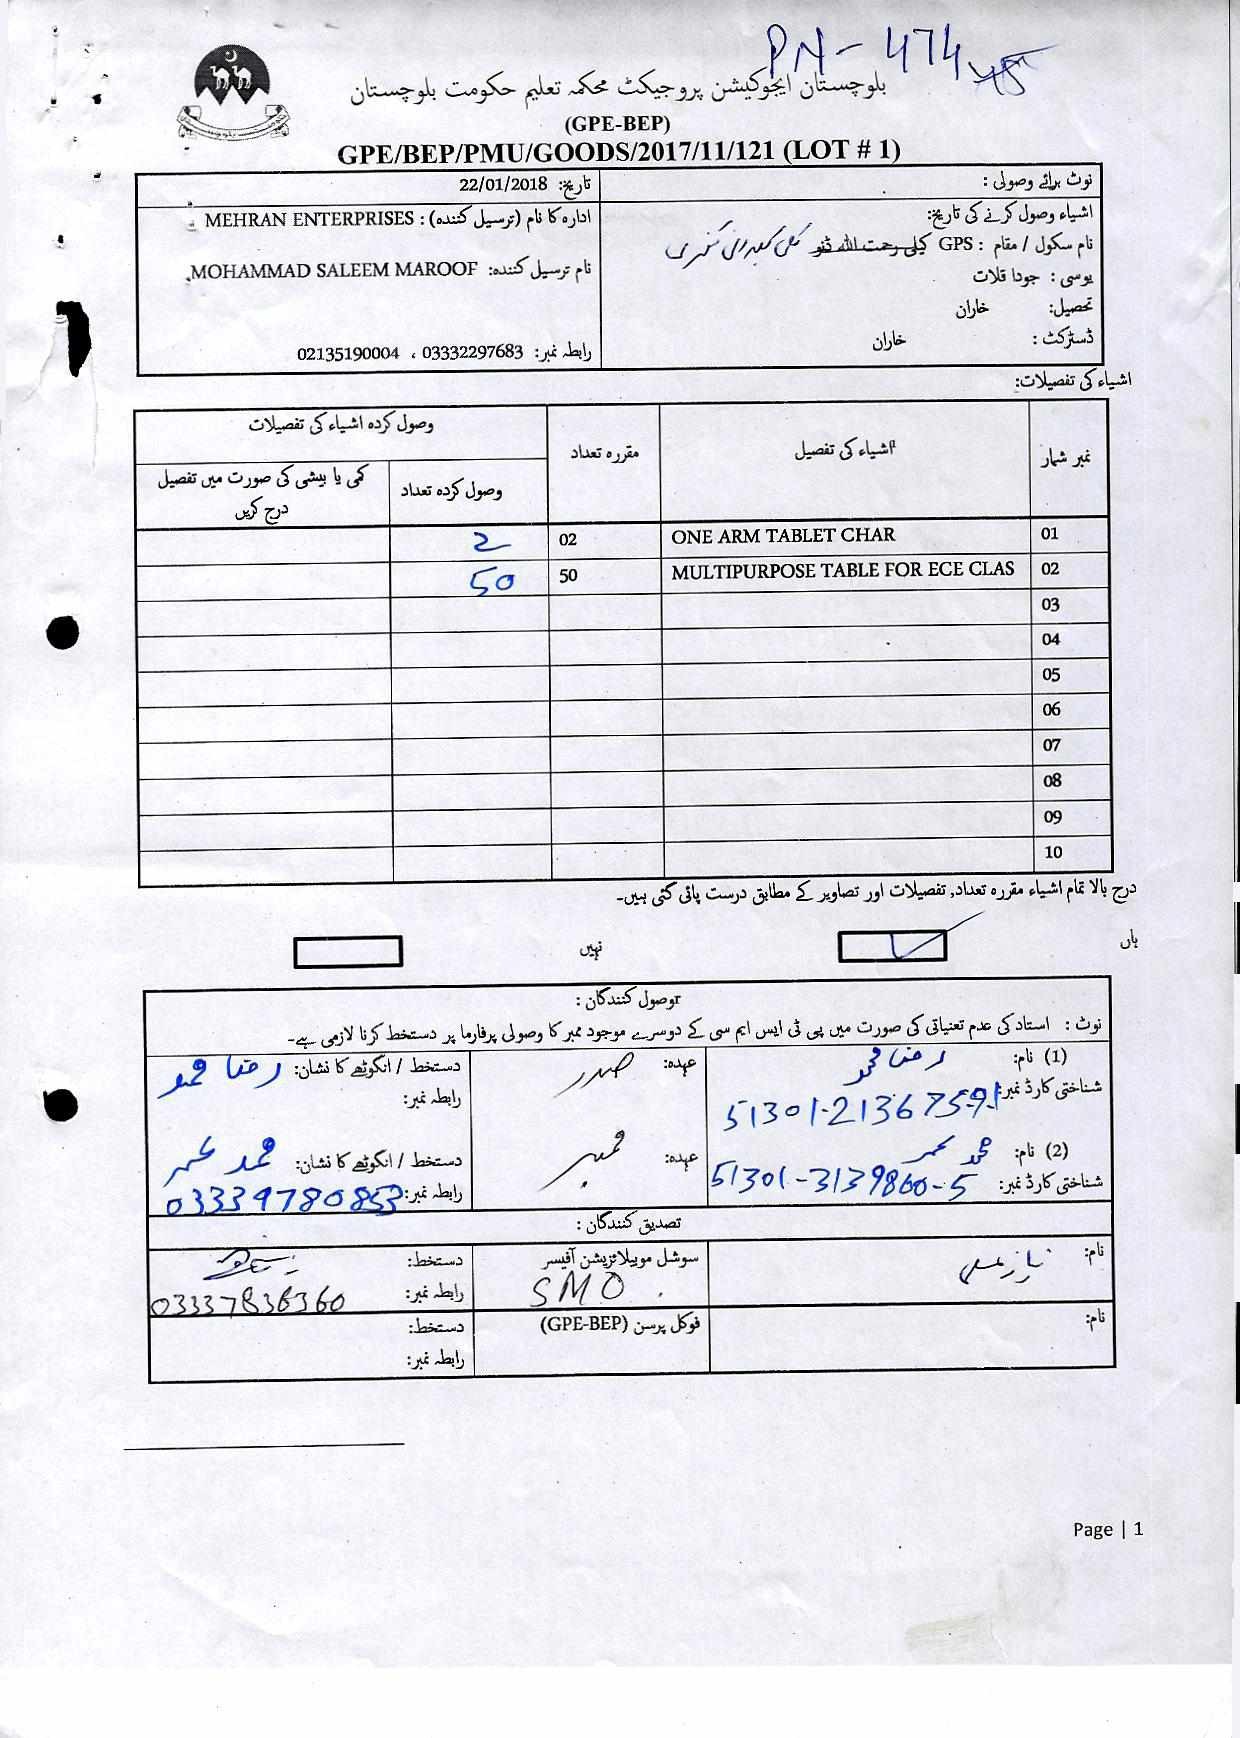 PN-474
بلوچستان ایجوکیشن پروجیکٹ محکمہ تعلیم حکومت بلوچستان
(GPE-BEP)
GPE/BEP/PMU/GOODS/2017/11/121 (LOT # 1)
نوٹ برائے وصولی :
تاریخ: 22/01/2018
اشیاء وصول کرنے کی تاریخ:
ادارہ کا نام (ترسیل کنندہ) : MEHRAN ENTERPRISES
نام سکول / مقام : GPS کیلی رحمت اللہ
نام ترسیل کنندہ: MOHAMMAD SALEEM MAROOF
یوسی : جودا قلات
تحصیل: خاران
ڈسٹرکٹ : خاران
رابطہ نمبر: 03332297683 ، 02135190004
اشیاء کی تفصیلات:
نمبر شمار اشیاء کی تفصیل مقررہ تعداد وصول کردہ اشیاء کی تفصیلات
وصول کردہ تعداد کمی یا بیشی کی صورت میں تفصیل درج کریں
01 ONE ARM TABLET CHAR 02 2
02 MULTIPURPOSE TABLE FOR ECE CLAS 50 50
03
04
05
06
07
08
09
10
درج بالا تمام اشیاء مقررہ تعداد, تفصیلات اور تصاویر کے مطابق درست پائی گئی ہیں۔
ہاں نہیں
وصول کنندگان :
نوٹ : استاد کی عدم تعنیاتی کی صورت میں پی ٹی ایس ایم سی کے دوسرے موجود ممبر کا وصولی پرفارما پر دستخط کرنا لازمی ہے۔
(1) نام: رضا محمد عہدہ: صدر دستخط / انگوٹھے کا نشان: رضا محمد
شناختی کارڈ نمبر: 51301-2136759-1 رابطہ نمبر:
(2) نام: محمد عمر عہدہ: ممبر دستخط / انگوٹھے کا نشان: محمد عمر
شناختی کارڈ نمبر: 51301-3139860-5 رابطہ نمبر: 03339780853
تصدیق کنندگان :
نام: نیاز علی سوشل موبیلائزیشن آفیسر دستخط:
SMO رابطہ نمبر: 03337836360
نام: فوکل پرسن (GPE-BEP) دستخط:
رابطہ نمبر:
Page | 1